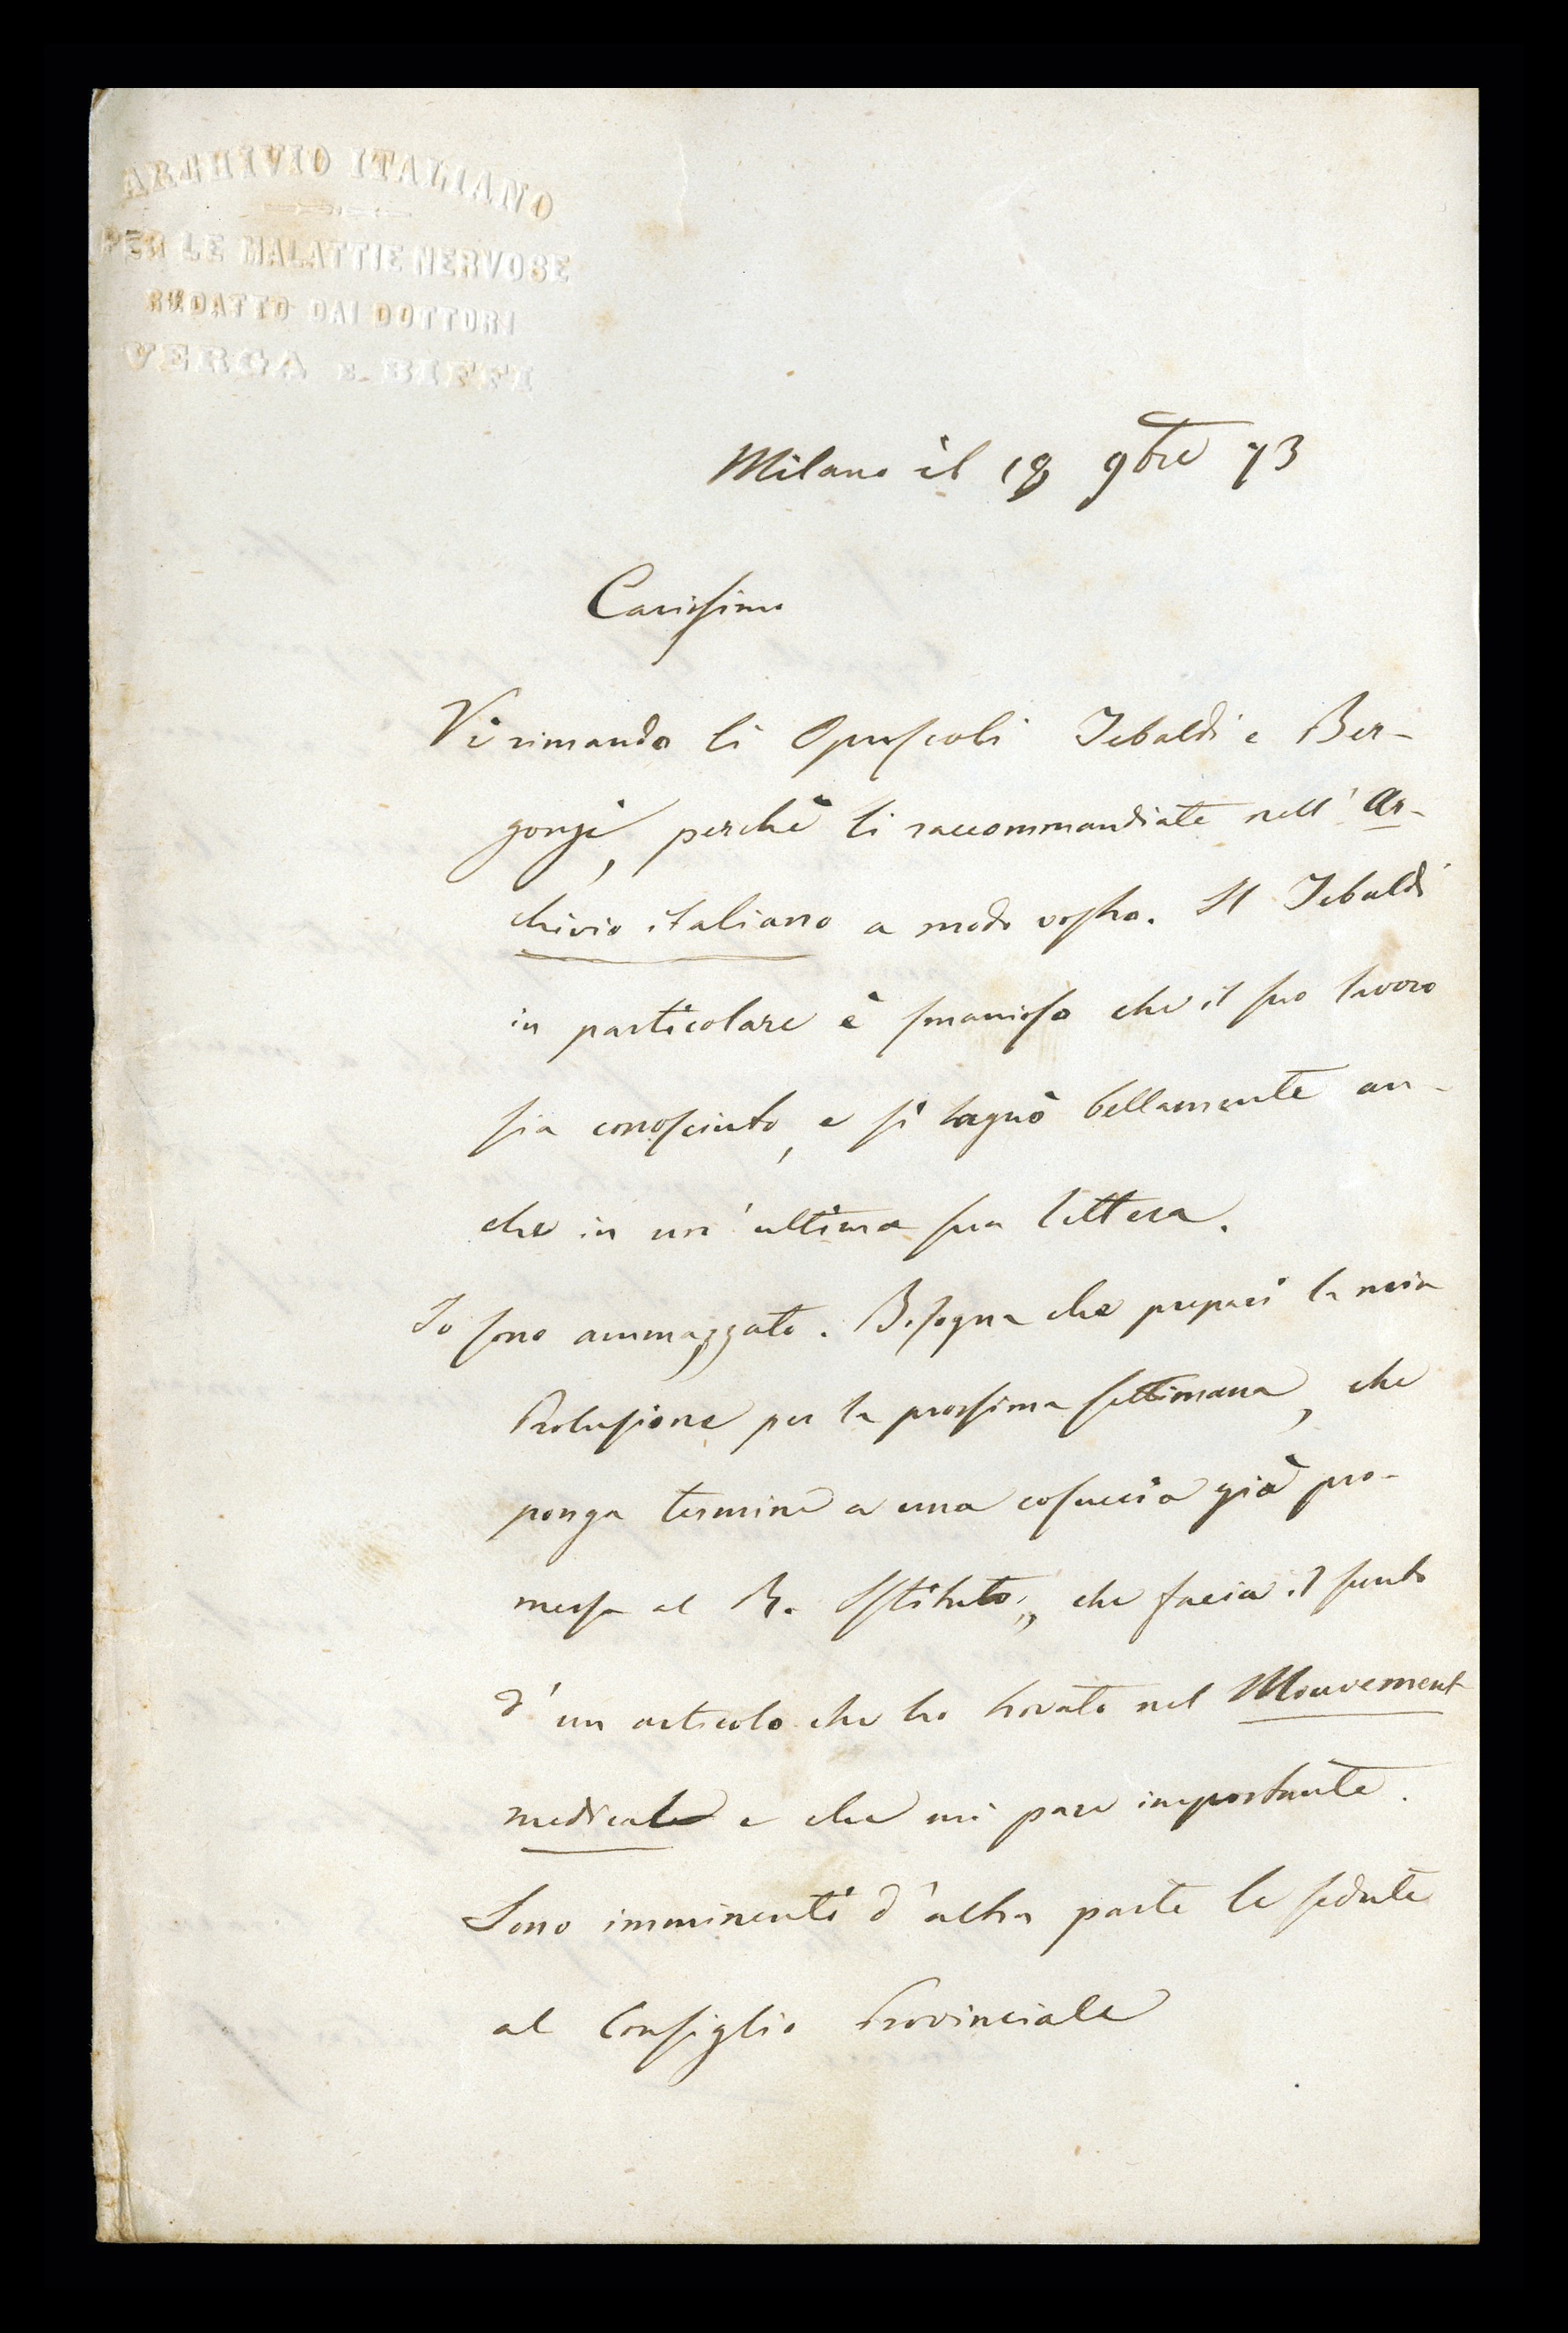 ARCHIVIO ITALIANO
PER LE MALATTIE NERVOSE
REDATTO DAI DOTTORI
VERGA E BIFFI
Milano il 18 9bre 73
Carissimo
Vi rimando li Opuscoli Tebaldi e Ber-
gonzi, perchè li raccommandiate nell'Ar-
chivio italiano a modo vostro. Il Tebaldi
in particolare è smanioso che il suo lavoro
sia conosciuto, e si lagnò bellamente an-
che in un'ultima sua lettera.
Io sono ammazzato. Bisogna che prepari la mia
Prolusione per la prossima settimana, che
ponga termine a una cosuccia già pro-
messa al R. Istituto, che faccia il sunto
d'un articolo che ho trovato nel Mouvement
medicale e che mi pare importante.
Sono imminenti d'altra parte le sedute
al Consiglio Provinciale